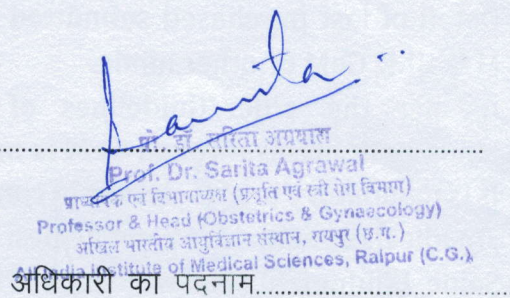 Sarita
प्रो. डॉ. सरिता अग्रवाल
Prof. Dr. Sarita Agrawal
प्राध्यापक एवं विभागाध्यक्ष (प्रसूति एवं स्त्री रोग विभाग)
Professor & Head (Obstetrics & Gynaecology)
अखिल भारतीय आयुर्विज्ञान संस्थान, रायपुर (छ.ग.)
All India Institute of Medical Sciences, Raipur (C.G.)
अधिकारी का पदनाम